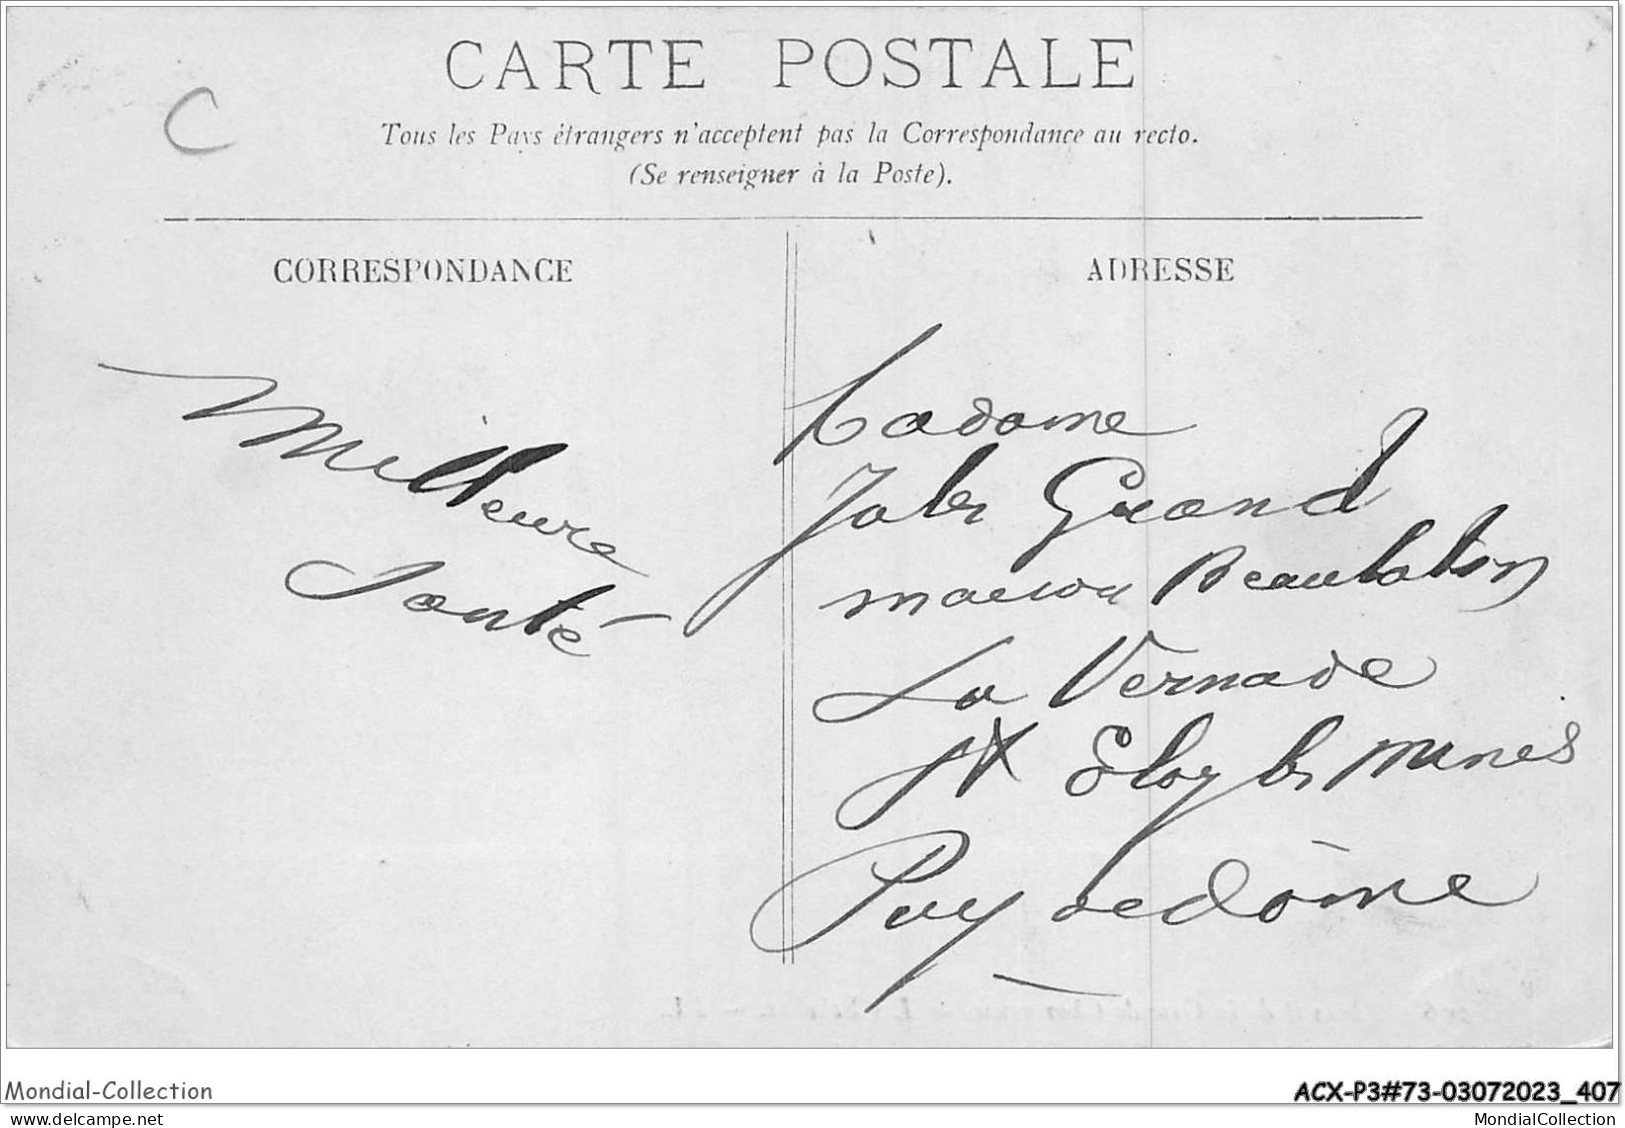 CARTE POSTALE
C
Tous les Pays étrangers n'acceptent pas la Correspondance au recto.
(Se renseigner à la Poste).
CORRESPONDANCE
Milleure
Santé
ADRESSE
Madame
Jules Grand
maison
La Vernade
St Eloy les mines
Puy de dôme
Mondial-Collection
ACX-P3#73-03072023_407
MondialCollection